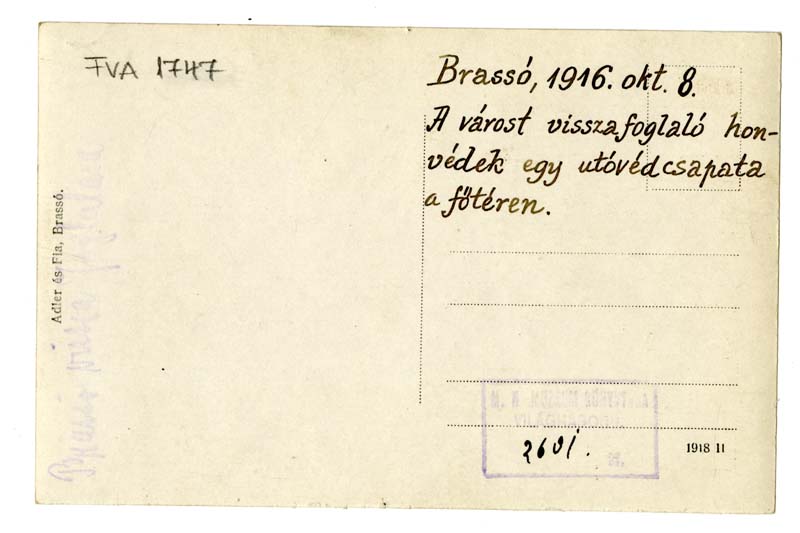 FVA 1747
Brassó, 1916. okt. 8.
A várost visszafoglaló hon-
védek egy utóvédcsapata
a főtéren.
Adler és Fia, Brassó.
Brassó vissza foglalása
1918 11